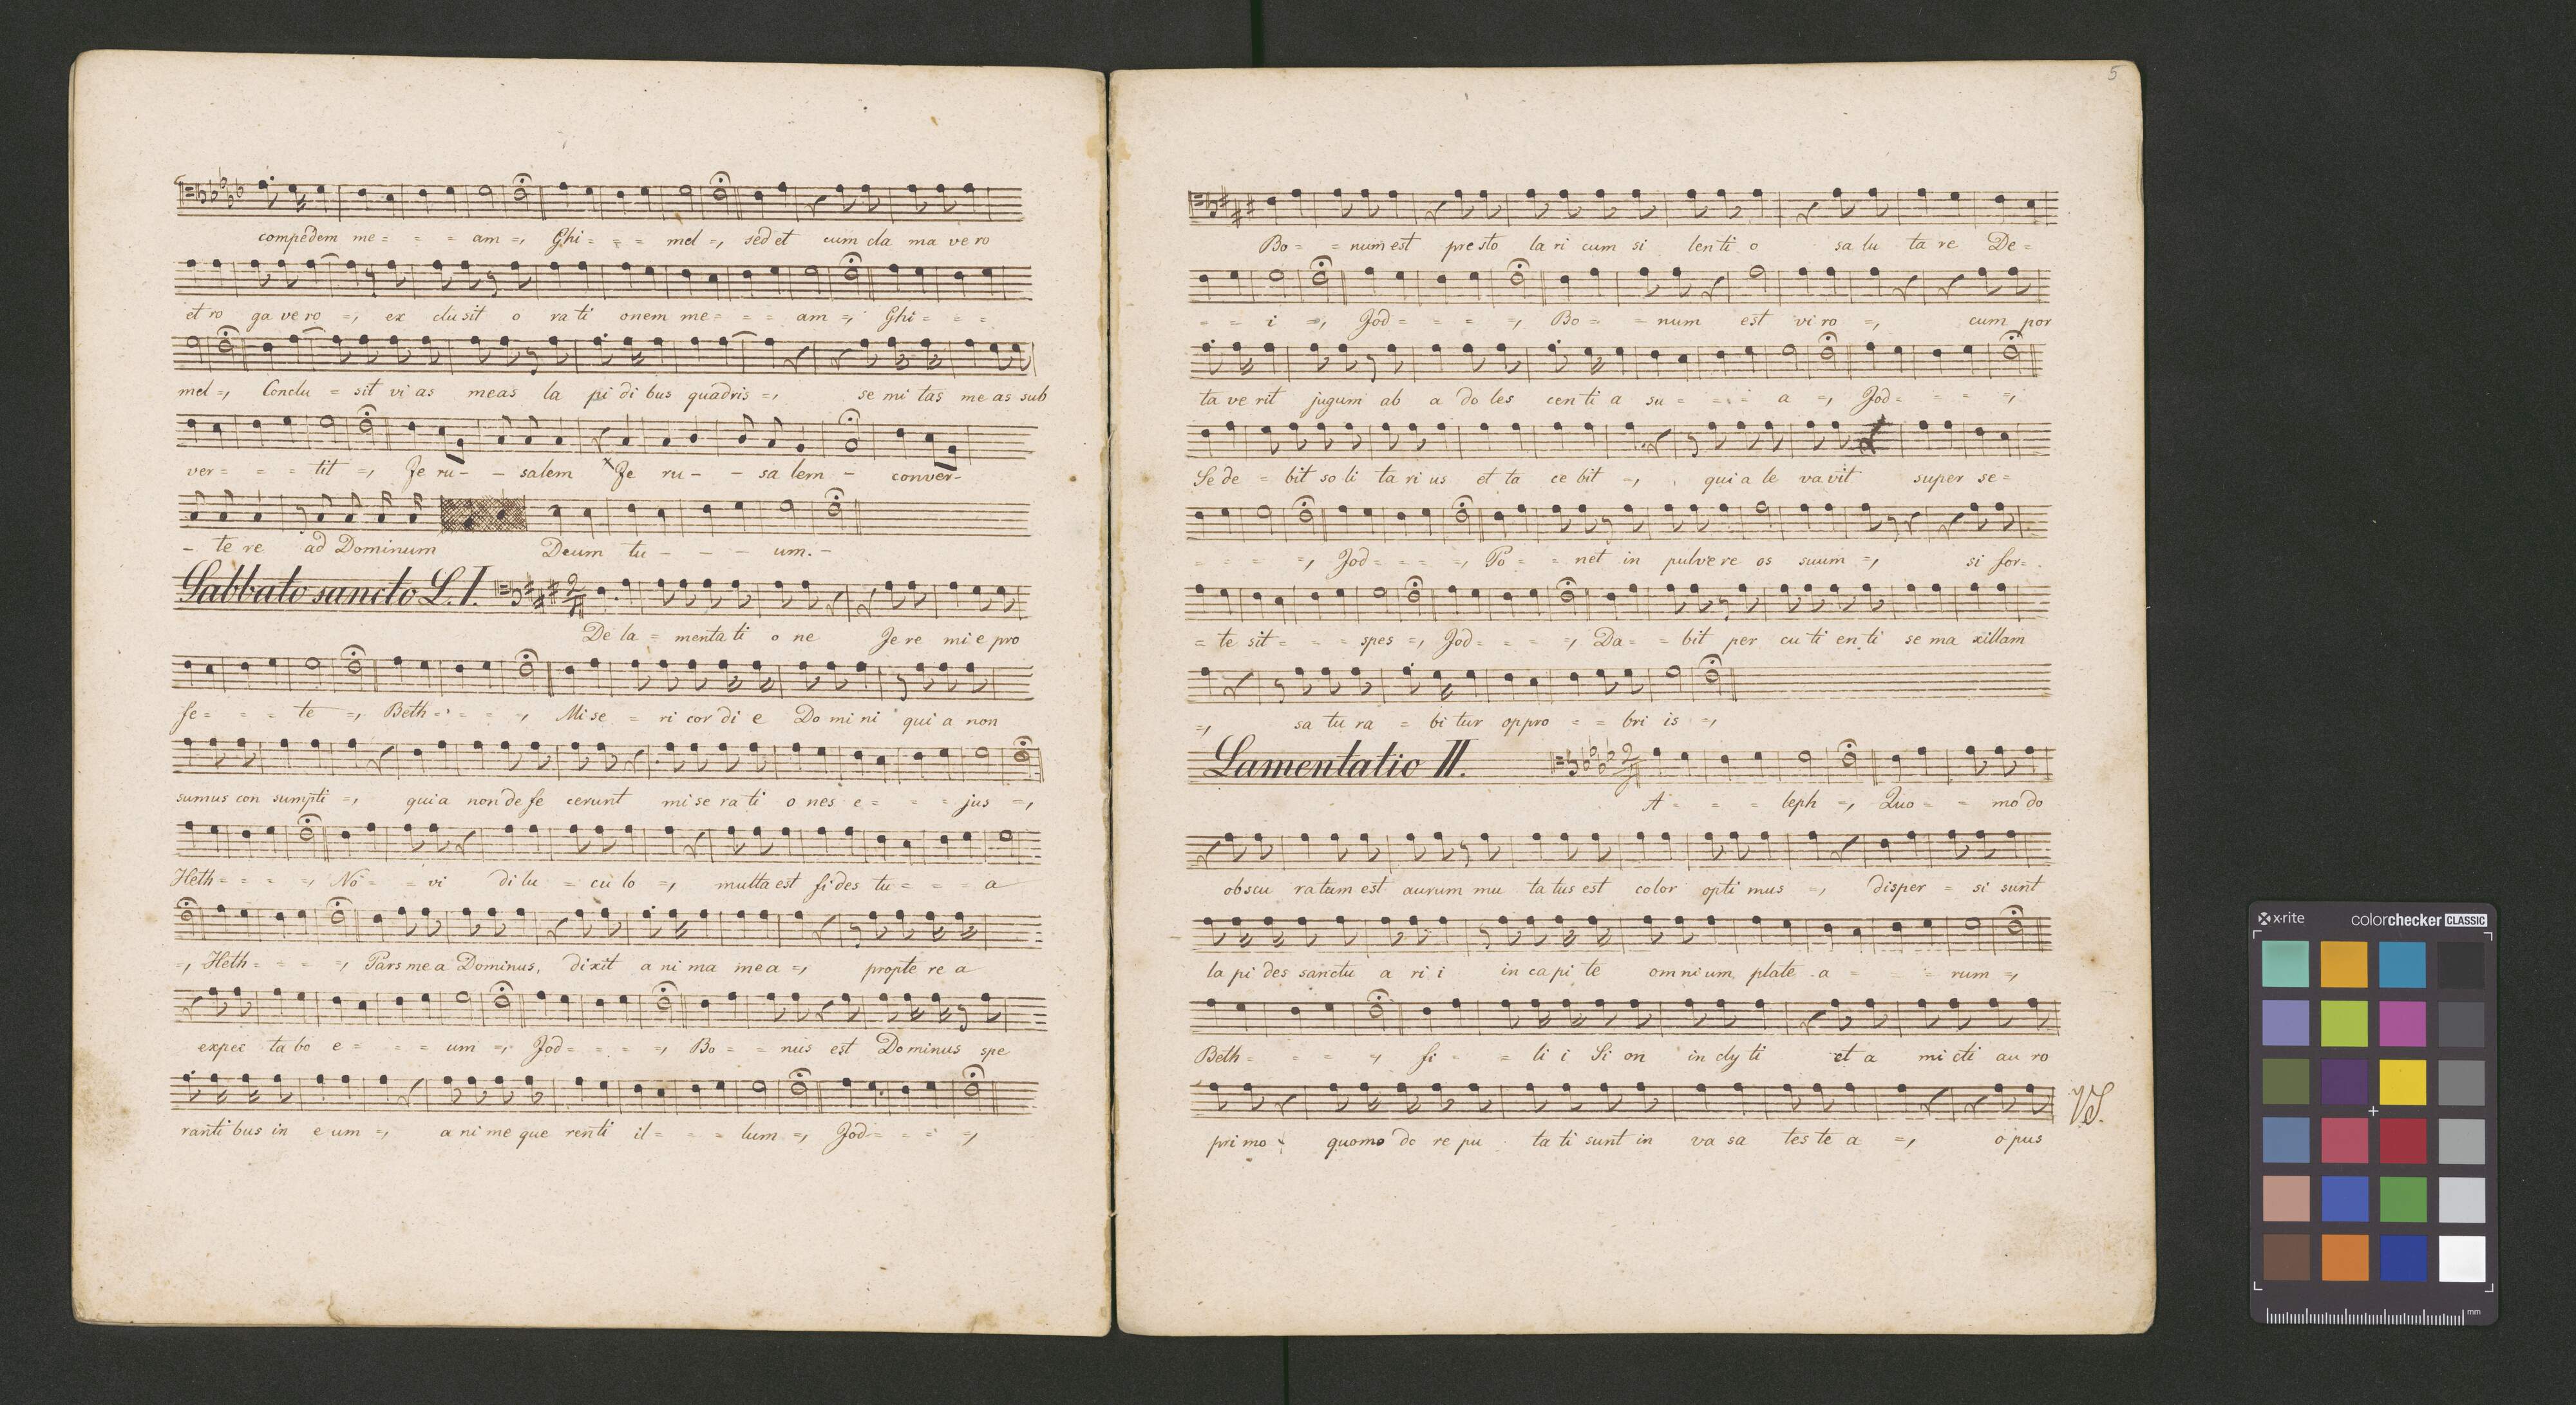 compedem me = = = am =, Ghi = = = mel =, sed et cum cla ma vero
et ro ga vero =, ex clusit o ra ti onem me = = = am =, Ghi = = =
mel =, Conclu = sit vi as meas la pi di bus quadris =, se mi tas me as sub
ver = = = tit =, Je ru - - salem Je ru - - sa lem - conver-
- te re ad Dominum Deum tu - - - um. -
Sabbato sancto L. I.
De la = menta ti o ne Je re mi e pro
fe = = = te =, Beth = = = =, Mi se = ri cor di e Do mi ni qui a non
sumus con sumpti =, quia non de fe cerunt mi se ra ti o nes e = = = jus =,
Heth = = = =, No = = vi di lu = cu lo =, multa est fi des tu = = = a
=, Heth = = = =, Pars me a Dominus, dixit a ni ma me a =, propte re a
expec ta bo e = = = um =, Jod = = = =, Bo = = nus est Dominus spe
ranti bus in e um =, a ni me que renti il = = = lum =, Jod = = = =,
5
Bo = = num est pre sto la ri cum si len ti o sa lu ta re De =
= = i =, Jod = = = =, Bo = = num est vi ro =, cum por
ta ve rit jugum ab a do les cen ti a su = = = a =, Jod = = = =,
Se de = bit so li ta ri us et ta ce bit =, qui a le va vit super se =
= = = =, Jod = = = =, Po = = net in pulve re os suum =, si for =
= te sit = = = spes =, Jod = = = =, Da = = bit per cu ti en ti se ma xillam
=, sa tu ra = bi tur oppro = = bri is =,
Lamentatio II.
A = = = leph =, Quo = = mo do
obscu ratum est aurum mu ta tus est color opti mus =, disper = si sunt
la pi des sanctu a ri i in ca pi te omnium plate a = = = rum =,
Beth = = = =, fi = = li i Si on in cly ti et a mi cti au ro
pri mo quomo do re pu ta ti sunt in va sa tes te a =, o pus
VS.
x-rite colorchecker CLASSIC
mm